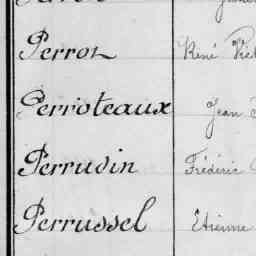 Perrot René
Perrioteaux Jean
Perrudin Frédéric
Perrussel Etienne